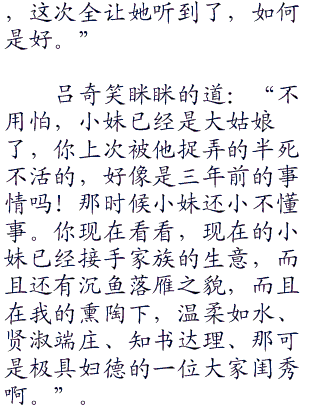 ，这次全让她听到了，如何
是好。”
吕奇笑眯眯的道：“不
用怕，小妹已经是大姑娘
了，你上次被他捉弄的半死
不活的，好像是三年前的事
情吗！那时候小妹还小不懂
事。你现在看看，现在的小
妹已经接手家族的生意，而
且还有沉鱼落雁之貌，而且
在我的熏陶下，温柔如水、
贤淑端庄、知书达理、那可
是极具妇德的一位大家闺秀
啊。”。